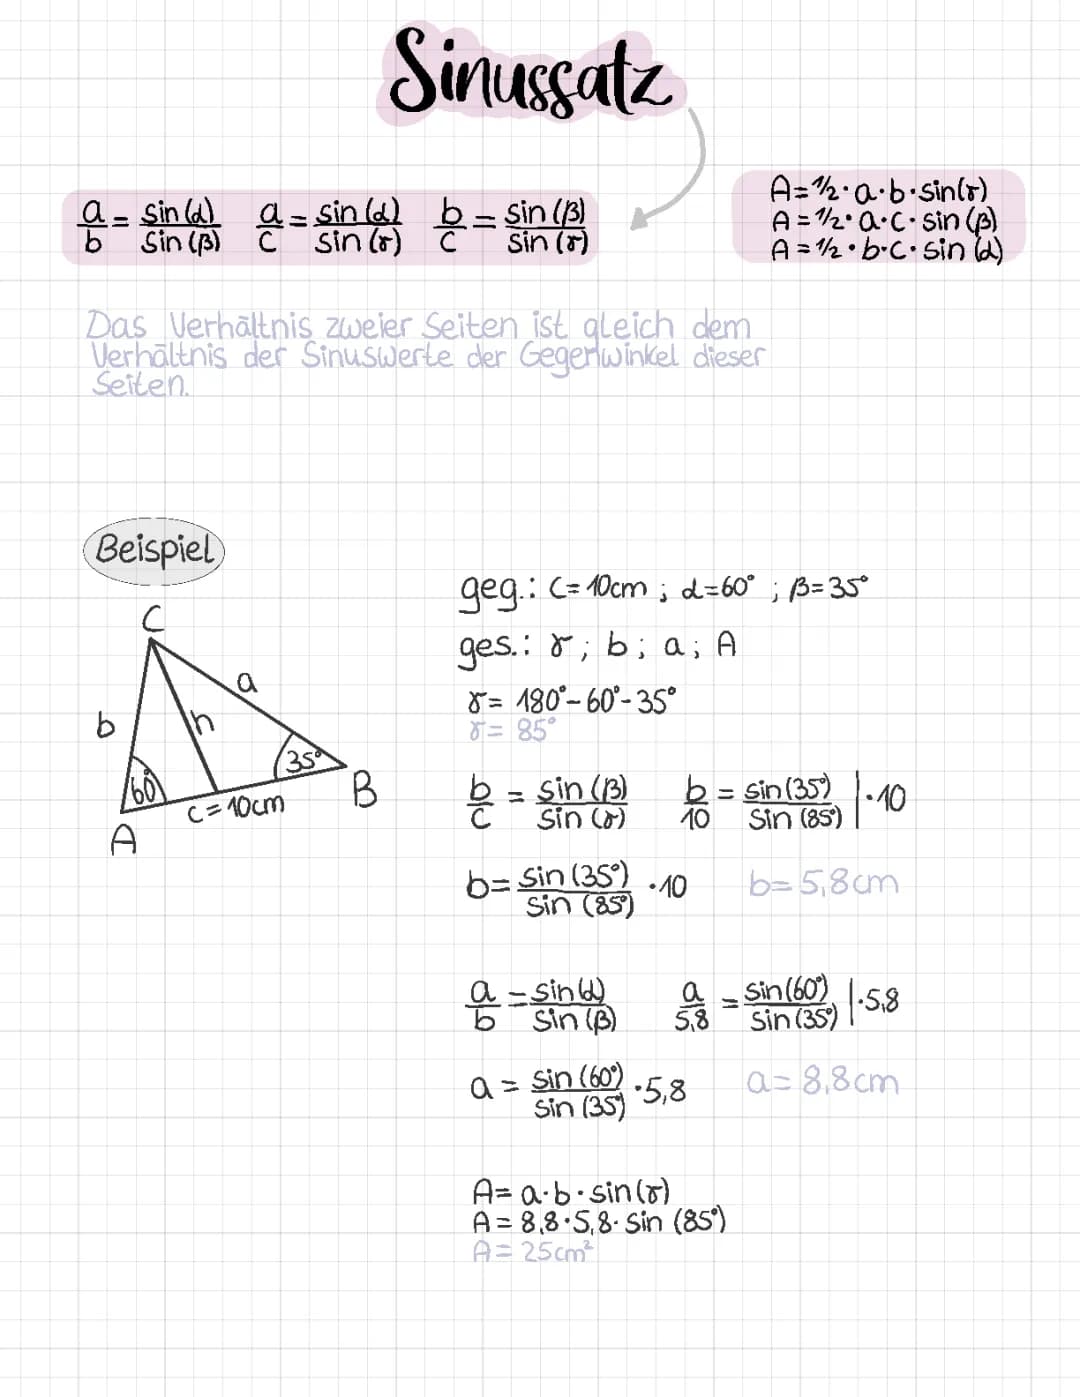 Sinussatz
a/b = sin(α)/sin(β) a/c = sin(α)/sin(γ) b/c = sin(β)/sin(γ)
A=1/2·a·b·sin(γ)
A=1/2·a·c·sin(β)
A=1/2·b·c·sin(α)
Das Verhältnis zweier Seiten ist gleich dem
Verhältnis der Sinuswerte der Gegenwinkel dieser
Seiten.
Beispiel
C
a
b
h
60°
35°
c=10cm
A
B
geg.: c=10cm ; α=60° ; β=35°
ges.: γ; b; a; A
γ= 180°-60°-35°
γ= 85°
b/c = sin(β)/sin(γ) b/10 = sin(35°)/sin(85°) |·10
b= sin(35°)/sin(85°) ·10 b=5,8cm
a/b = sin(α)/sin(β) a/5,8 = sin(60°)/sin(35°) |·5,8
a = sin(60°)/sin(35°) ·5,8 a=8,8cm
A= a·b·sin(γ)
A= 8,8·5,8·sin(85°)
A= 25cm²